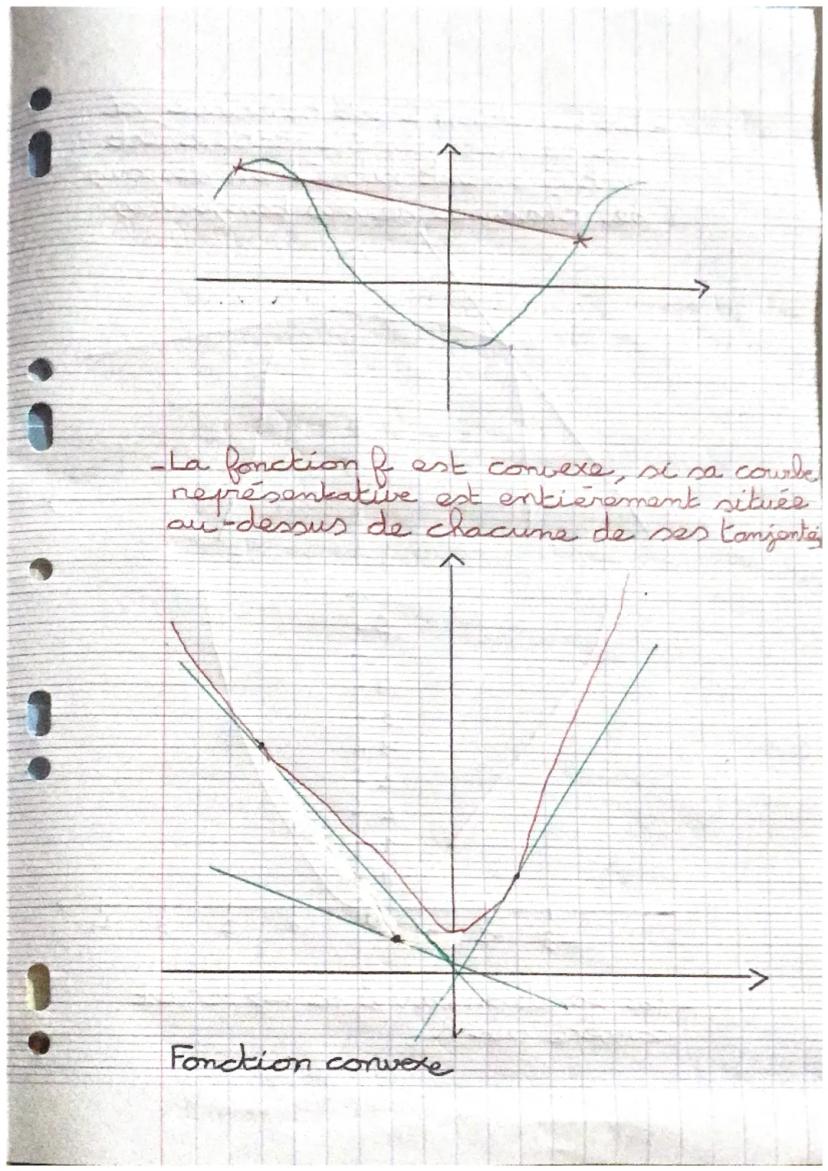 -La fonction f est convexe, si sa courbe
représentative est entièrement située
au-dessus de chacune de ses tanjentes
Fonction convexe